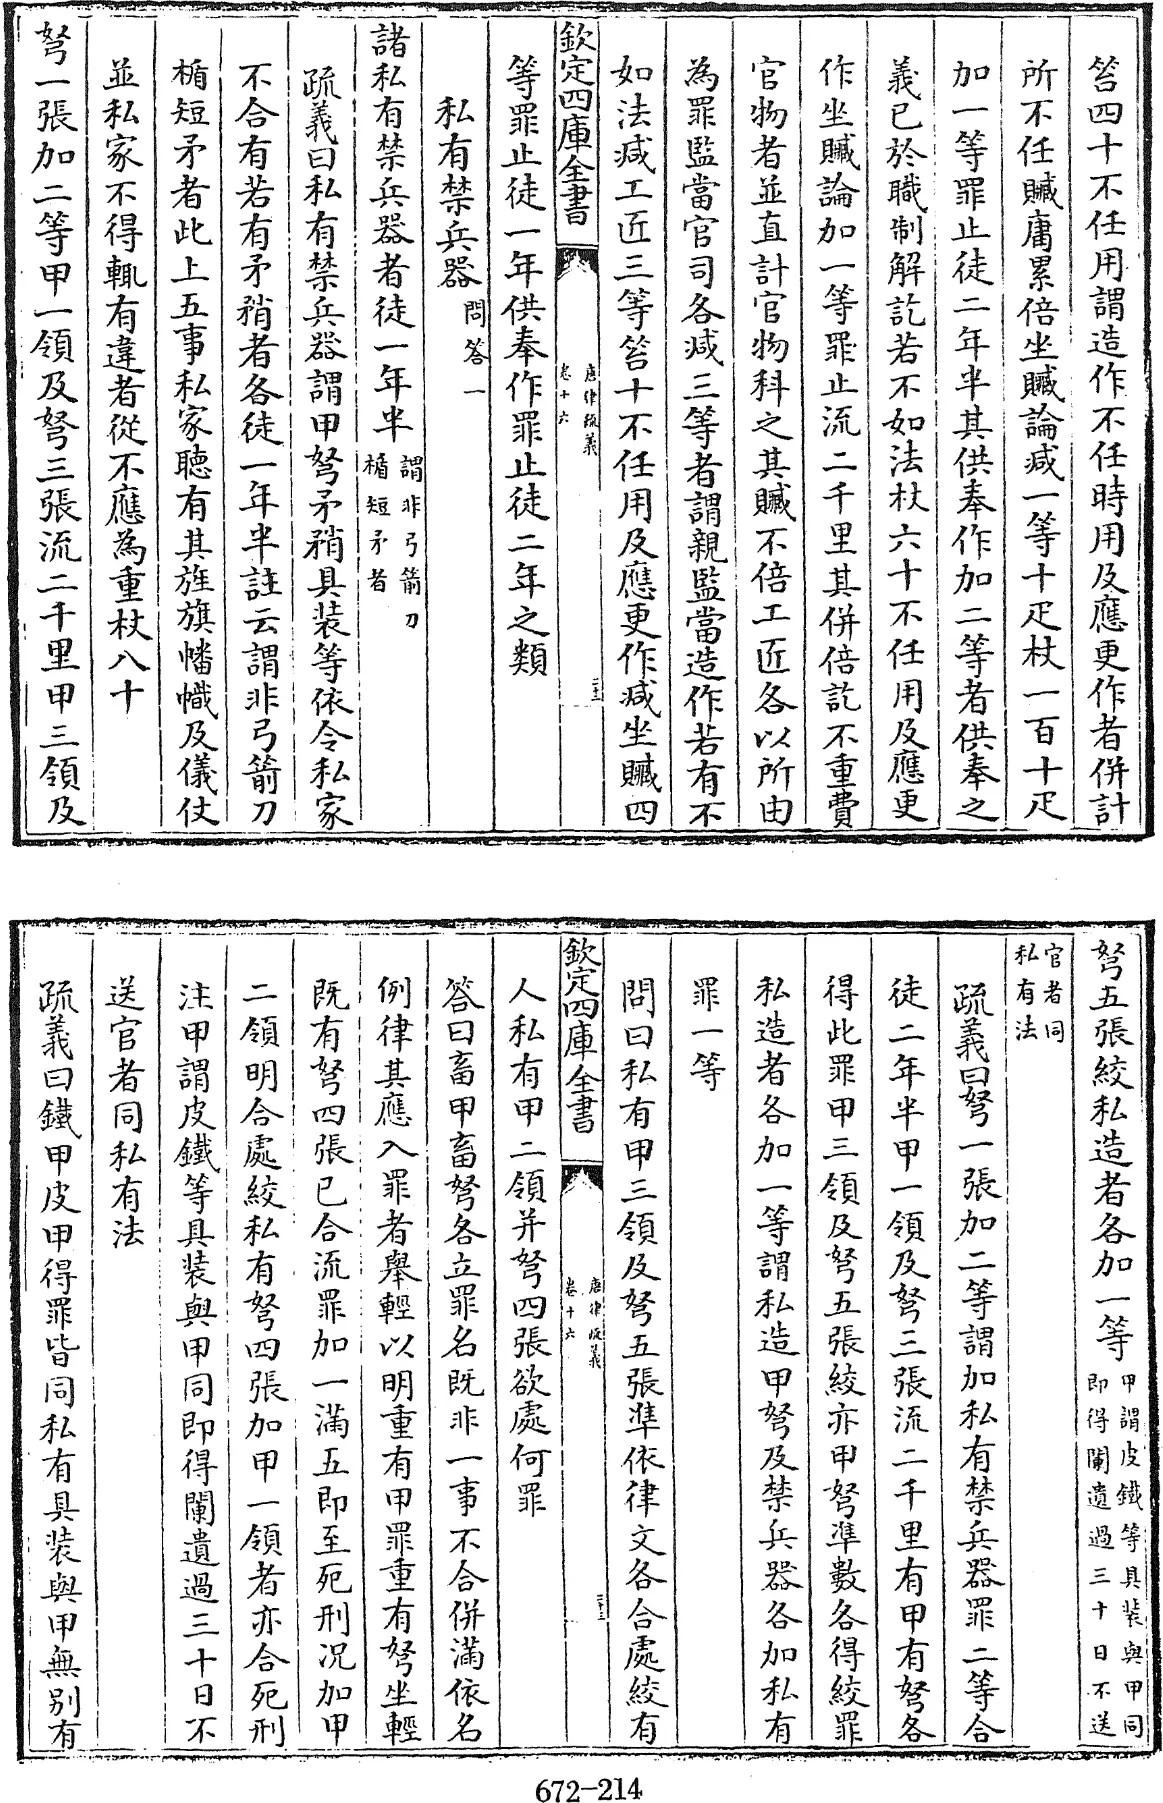 笞四十不任用謂造作不任時用及應更作者併計
所不任贓庸累倍坐贓論減一等十疋杖一百十疋
加一等罪止徒二年半其供奉作加二等者供奉之
義已於職制解訖若不如法杖六十不任用及應更
作坐贓論加一等罪止流二千里其併倍訖不重費
官物者並直計官物科之其贓不倍工匠各以所由
為罪監當官司各減三等者謂親監當造作若有不
如法減工匠三等笞十不任用及應更作減坐贓四
欽定四庫全書
唐律疏義
卷十六
等罪止徒一年供奉作罪止徒二年之類
私有禁兵器問答一
諸私有禁兵器者徒一年半謂非弓箭刀
楯短矛者
疏義曰私有禁兵器謂甲弩矛矟具装等依令私家
不合有若有矛矟者各徒一年半註云謂非弓箭刀
楯短矛者此上五事私家聴有其旌旗幡幟及儀仗
並私家不得輒有違者從不應為重杖八十
弩一張加二等甲一領及弩三張流二千里甲三領及
弩五張絞私造者各加一等甲謂皮鐵等具装與甲同
即得闌遺過三十日不送
官者同
私有法
疏義曰弩一張加二等謂加私有禁兵器罪二等合
徒二年半甲一領及弩三張流二千里有甲有弩各
得此罪甲三領及弩五張絞亦甲弩準數各得絞罪
私造者各加一等謂私造甲弩及禁兵器各加私有
罪一等
問曰私有甲三領及弩五張準依律文各合處絞有
欽定四庫全書
唐律疏義
卷十六
人私有甲二領并弩四張欲處何罪
答曰畜甲畜弩各立罪名既非一事不合併滿依名
例律其應入罪者舉輕以明重有甲罪重有弩坐輕
既有弩四張已合流罪加一滿五即至死刑况加甲
二領明合處絞私有弩四張加甲一領者亦合死刑
注甲謂皮鐵等具装與甲同即得闌遺過三十日不
送官者同私有法
疏義曰鐵甲皮甲得罪皆同私有具装與甲無別有
672-214